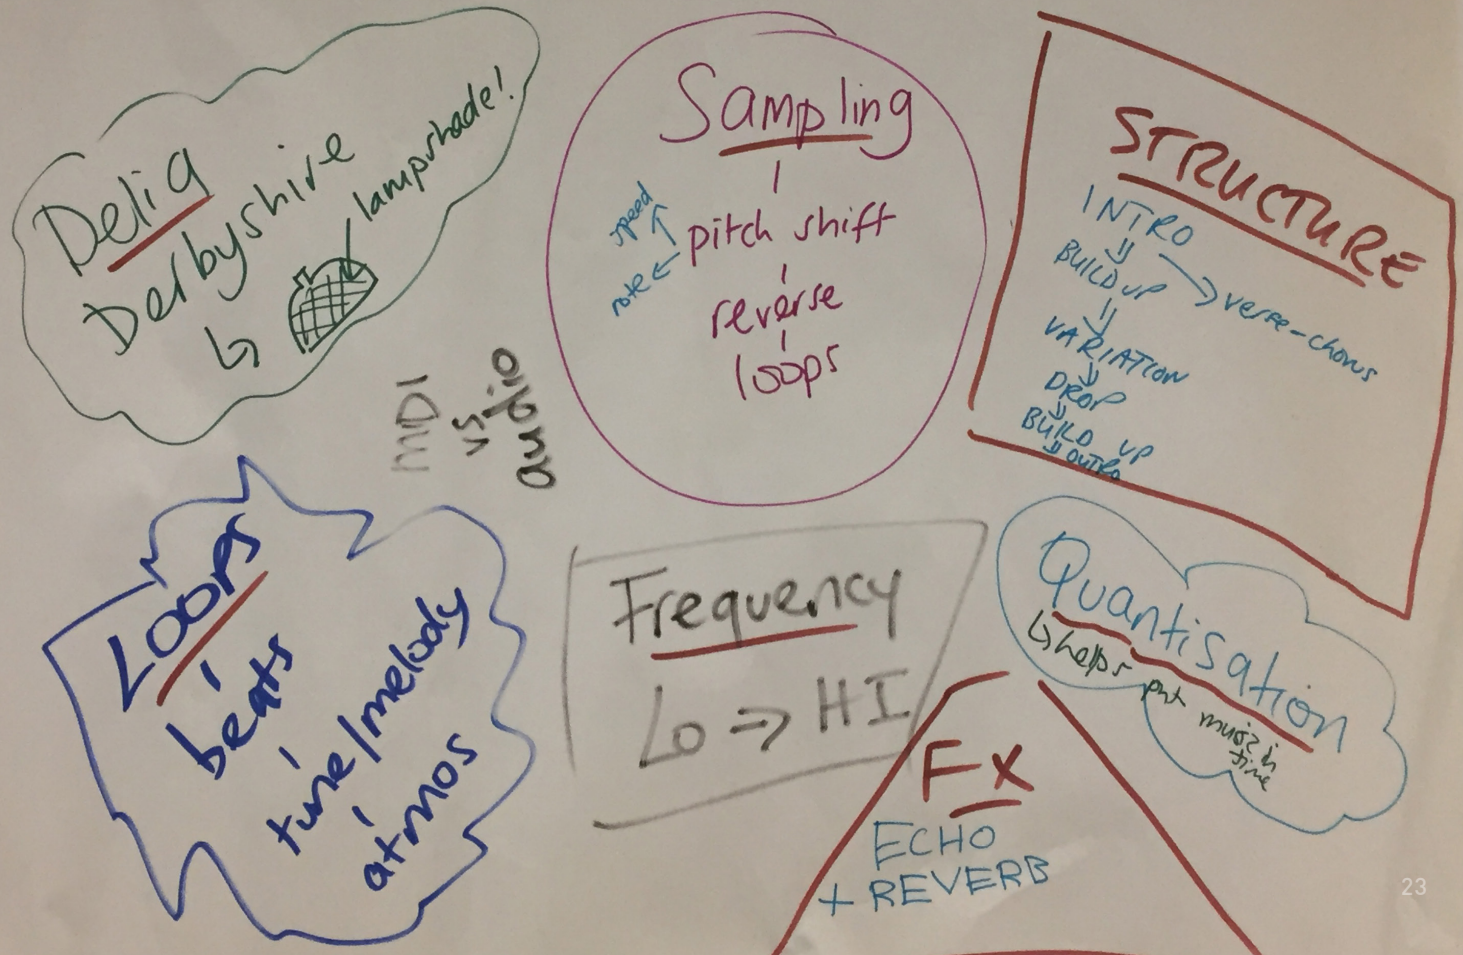 Delia
Derbyshire
lampshade!
Sampling
pitch shift
speed
note
reverse
loops
STRUCTURE
INTRO
verse-chorus
BUILD UP
VARIATION
DROP
BUILD UP
OUTRO
MIDI
vs
audio
LOOPS
beats
tune/melody
atmos
Frequency
Lo ⇒ HI
Quantisation
↳ helps put music in
time
FX
ECHO
+ REVERB
23